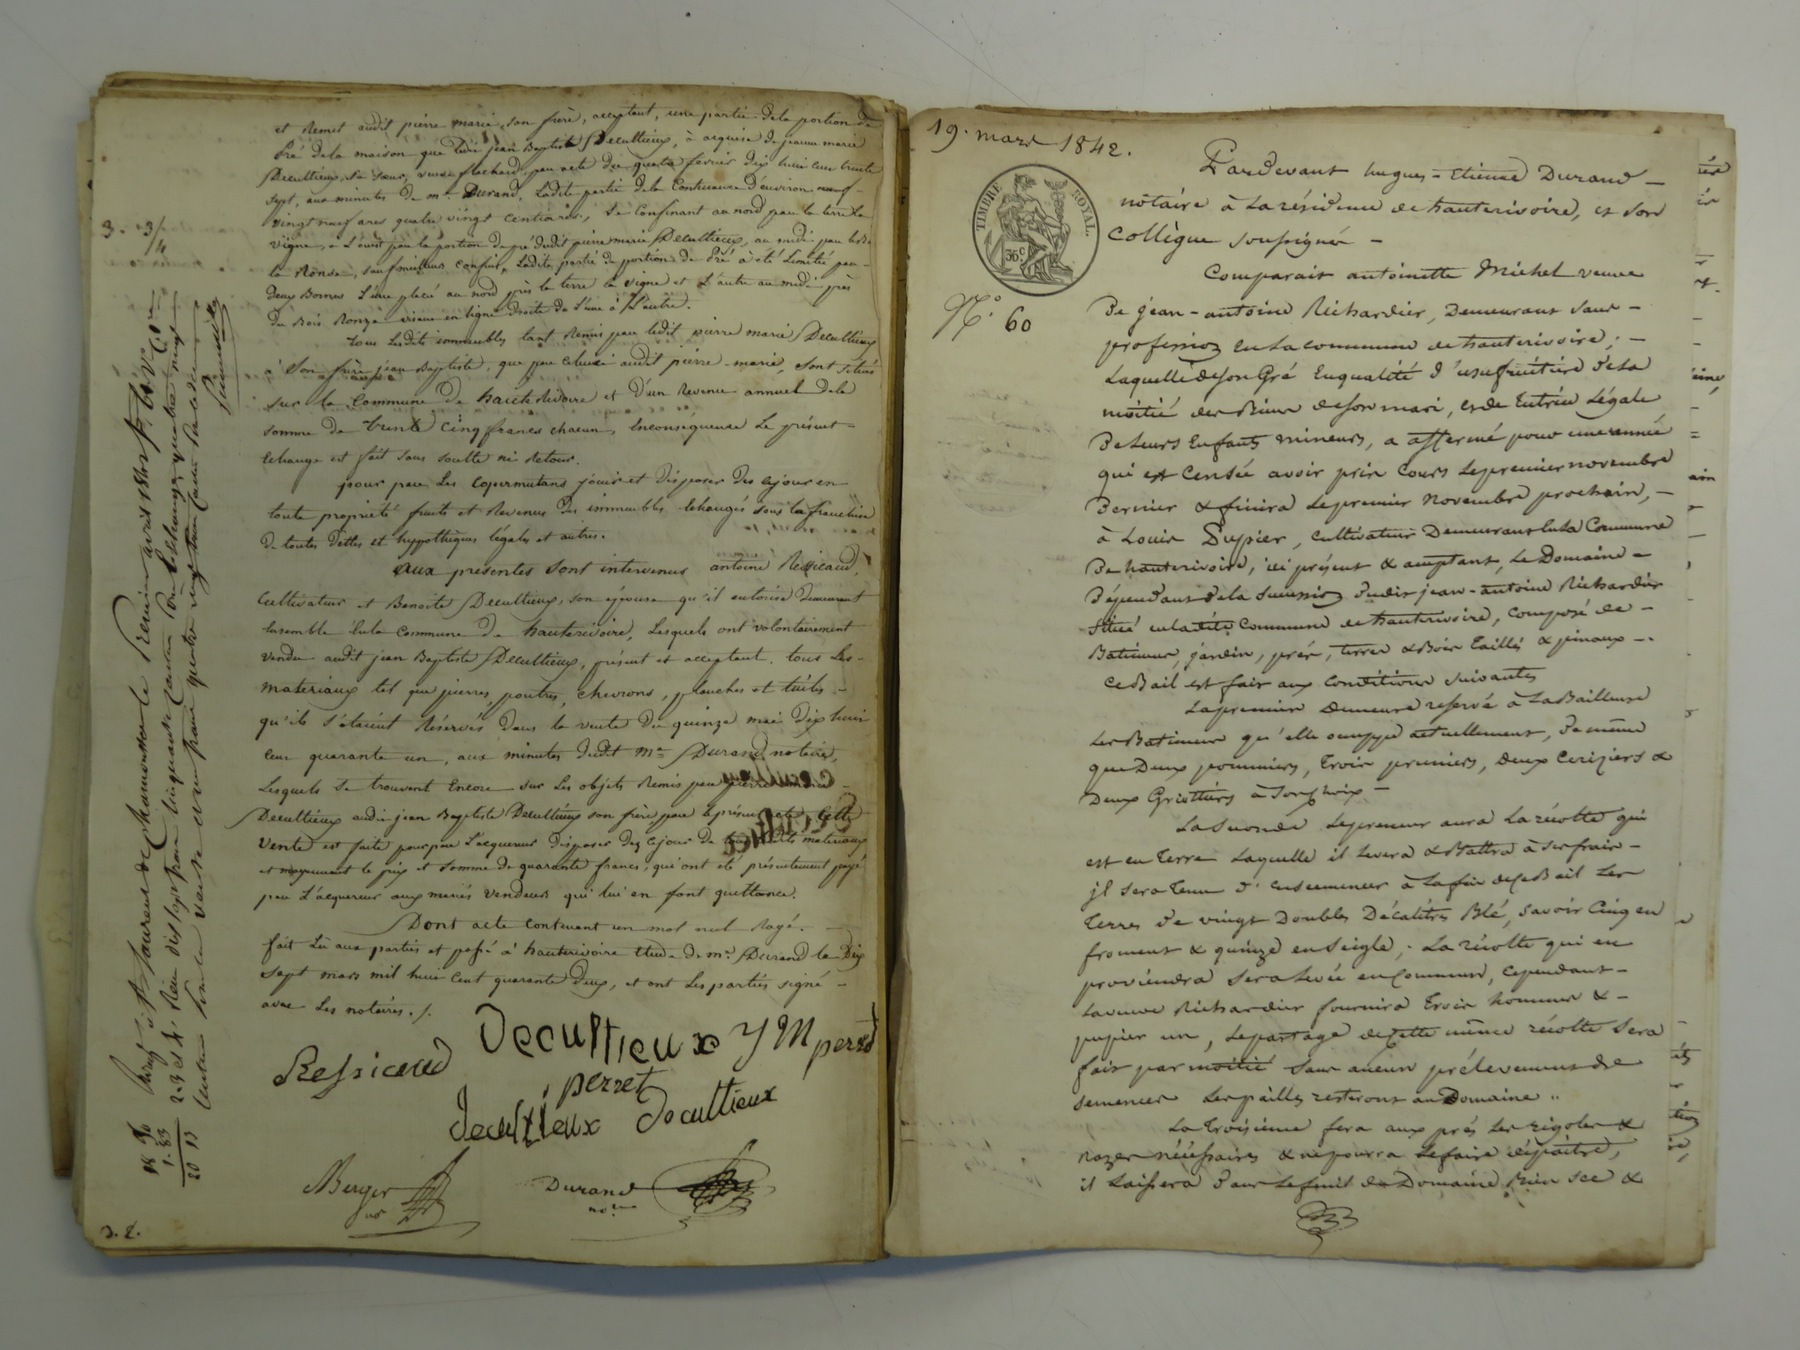 et Remet audit pierre marie, son frère, acceptant, une partie de la portion de
Pré de la maison que ledit jean Baptiste Decultieux, à acquise de jeanne marie
Decultieux, sa sœur, veuve flachard, par acte du quatre fevrier dix huit cent trente
sept, aux minutes de me. Durand, Ladite partie de la Contenance d'environ neuf
vingt neuf ares quatre vingt centiares, Se Confinant au nord par la terre La
vigne, à L'ouest par la portion de pré dudit pierre marie Decultieux, au midi par le Bois
la Ronze, sauf meilleurs confins, Ladite partie de portion de Pré à été Limitée par
deux Bornes L'une placé au nord près la terre la vigne et L'autre au midi près
du Bois Ronze visant en ligne droite de L'une à L'autre.
Tous Lesdits immeubles tant Remis par ledit pierre marie Decultieux
à Son frère jean Baptiste, que par celui-ci audit pierre-marie, Sont Situés
sur la Commune de hauterivoire et D'un Revenu annuel de la
somme de trente cinq francs chacun, Enconséquence Le présent
Echange est fait sans soulte ni Retour.
pour par Les Copermutans jouir et Disposer Dès cejour en
toute propriété fruits et Revenus Des immeubles Echangés sous la franchise
De toutes Dettes et hypothèques légales et autres.
aux presentes sont intervenus antoine Ressicaud,
Cultivateur et Benoite Decultieux, son épouse qu'il autorise Demeurant
Ensemble En la Commune De hauterivoire, Lesquels ont volontairement
vendu audit jean Baptiste Decultieux, présent et acceptant, tous Les
materiaux tel que pierres, poutres, chevrons, planches et tuiles
qu'ils S'étaient Réservés Dans la vente Du quinze mai Dix huit
cent quarante un, aux minutes dudit Me Durand notaire,
Lesquels Se trouvent Encore sur Les objets Remis par pierre marie
Decultieux audit jean Baptiste Decultieux son frère, par le présent acte. Cette
Vente est faite pour par L'acquereur Disposer Dez cejour de tous Lesdits materiaux
et moyennant le prix et Somme de quarante francs, qui ont été présentement payé
par L'acquereur aux mariés Vendeurs qui lui en font quittance.
Dont acte contenant un mot nul Rayé.
fait Lu aux parties et passé à hauterivoire Etude de me. Durand le Dix
Sept mars mil huit Cent quarante Deux, et ont Les parties signé
avec Les notaires. /.
Decultieux J M perret
Ressicaud
perret
Decultieux Decultieux
Berger
no
Durand
no.re
3. 3/4
18 90
1.83
20 73
3. 2.
19. mars 1842.
TIMBRE ROYAL.
35c
N.o 60
Pardevant hugues-Etienne Durand
notaire à La résidence de hauterivoire, et son
Collègue soussignés
Comparait antoinette Michel veuve
De jean-antoine Richardier, Demeurant sans
profession En La commune de hauterivoire;
Laquelle de son Gré En qualité d'usufruitière de La
moitié des Biens de son mari, et de tutrice Légale
De Leurs Enfants mineurs, a affermé pour une année
qui est Censée avoir pris Cours Le premier novembre
Dernier & finira Le premier novembre prochain,
à Louis Pupier, Cultivateur Demeurant En La Commune
De hauterivoire, ici présent & acceptant, Le Domaine
Dépendant de la succession dudit jean-antoine Richardier
Situé en ladite Commune de hauterivoire, composé de
Batiment, jardin, prés, terres & Bois Taillis & pinaux.
Ce Bail est fait aux Conditions suivantes
La première Demeure reservé à La Bailleuse
Les Batimens qu'elle occuppe actuellement, De même
que Deux pommiers, Trois pruniers, deux Cerizers &
Deux Griottiers à Son choix
La Seconde Le preneur aura La récolte qui
est en Terre Laquelle il Levera & Battra à Ses frais
il sera tenu d'ensemencer à La fin de ce Bail Les
Terres de vingt Doubles Décalitres Blé, Savoir Cinq en
froment & quinze en Seigle; La récolte qui en
proviendra Sera Levée en Commun, Cependant
La veuve Richardier fournira Trois hommes &
pupier un, Le partage de Cette même récolte Sera
fait par moitié Sans aucun prélevement de
semences Les pailles resteront au Domaine
La Troisième fera aux prés Les rigoles &
razes nécéssaires & ne pourra Le faire dépaitre,
il Laissera dans Le fenil du Domaine Bien Sec &